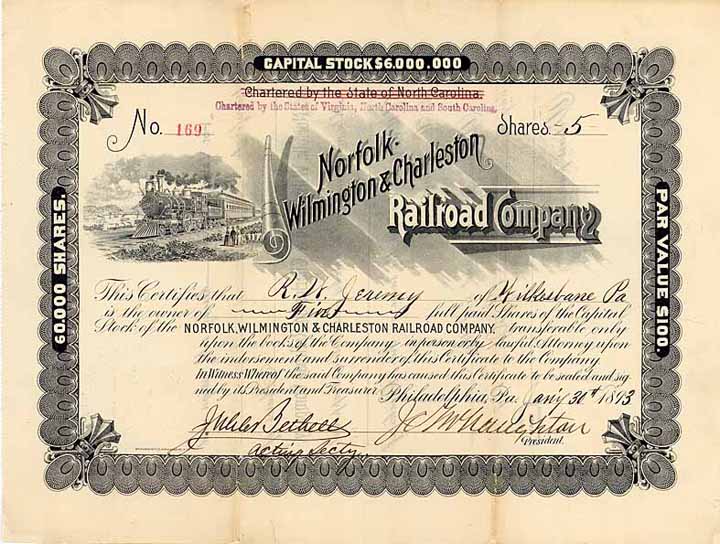 CAPITAL STOCK $6.000.000
Chartered by the State of North Carolina.
Chartered by the States of Virginia, North Carolina and South Carolina.
No. 169
Shares. 5
Norfolk.
Wilmington & Charleston
Railroad Company
60.000 SHARES.
PAR VALUE $100.
This Certifies that R. W. Jeremy of Wilkesbarre Pa
is the owner of Five full paid Shares of the Capital
Stock of the NORFOLK, WILMINGTON & CHARLESTON RAILROAD COMPANY. transferable only
upon the books of the Company in person or by lawful Attorney upon
the indorsement and surrender of this Certificate to the Company.
In Witness Whereof the said Company has caused this Certificate to be sealed and sig-
ned by its President and Treasurer. Philadelphia, Pa. Jany 31st 1893
Bethell
acting Secty.
President.